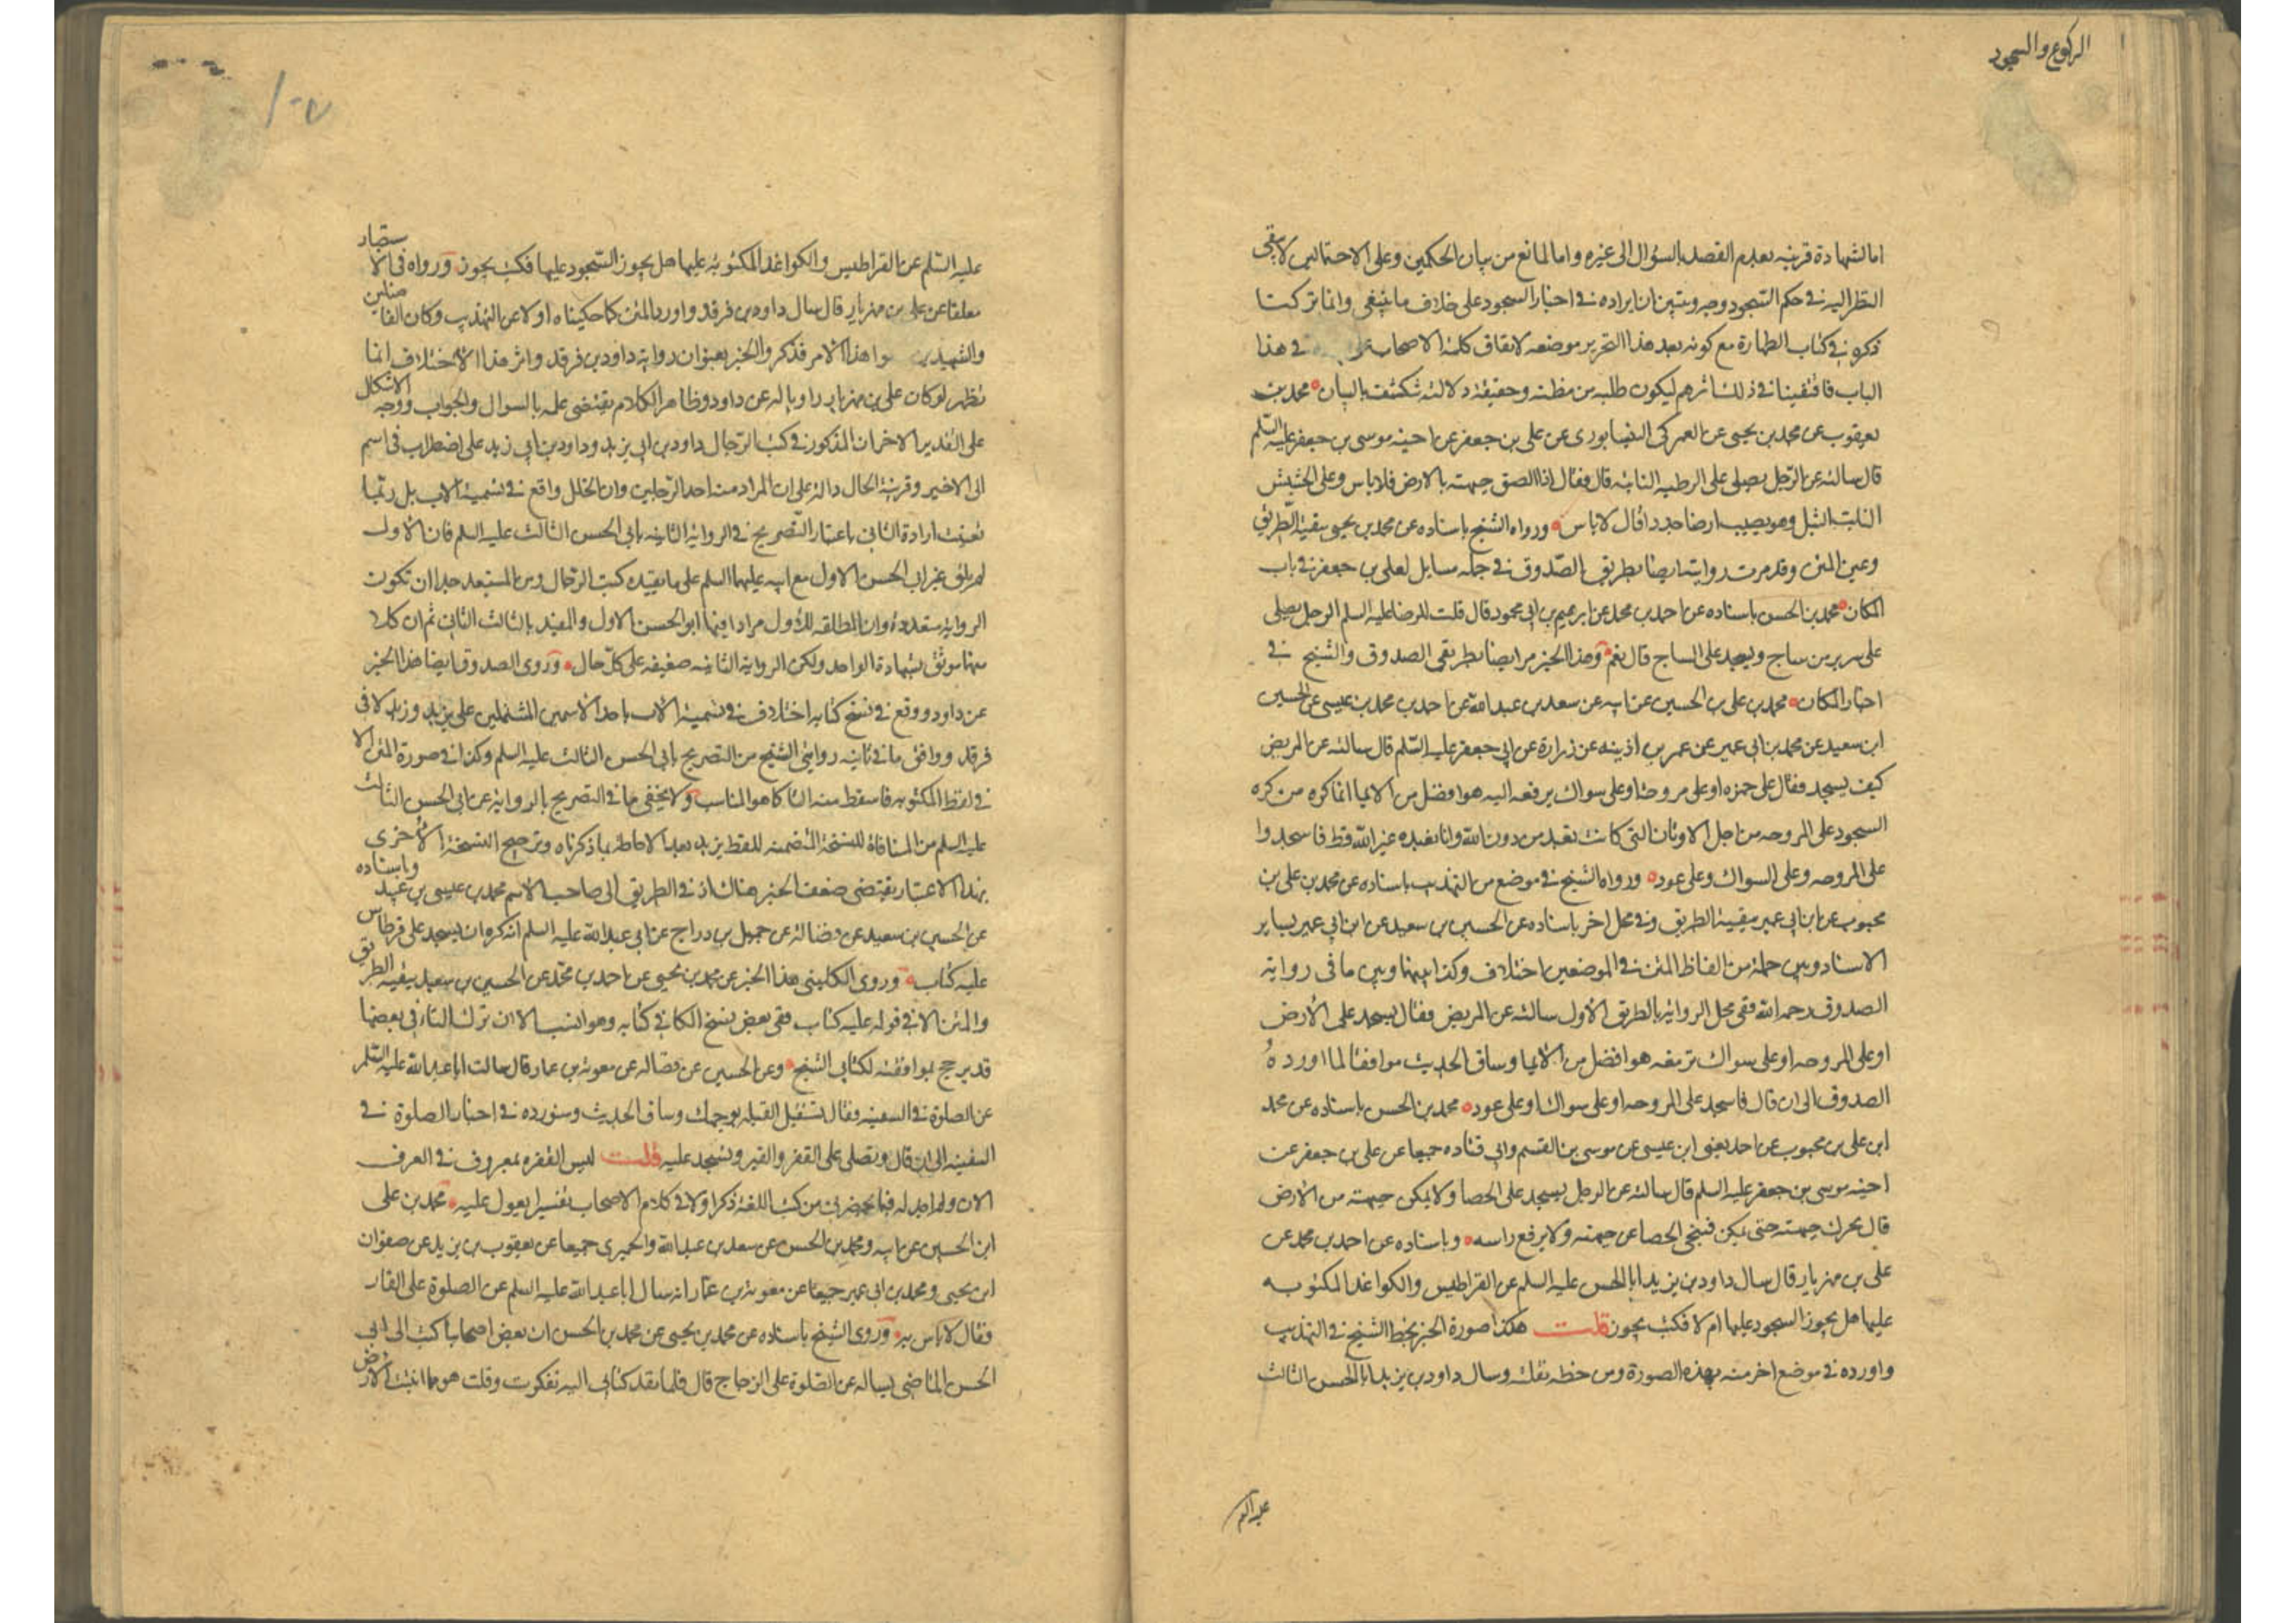 الركوع والسجود
اما لشهادة قرينه بعدم القصد بالسؤال الى غيره واما لمانع من بيان الحكمين وعلى الاحتمالين لا يبقى
النظر اليه في حكم السجود وجه ويتبين ان ايراده في اخبار السجود على خلاف ما ينبغي وانما تركنا
ذكره في كتاب الطهارة مع كونه بعد هذا التحرير موضعه لاتفاق كلمة الاصحاب في هذا
الباب فاقتفينا في ذلك اثرهم ليكون طلبه من مظنته وحقيقة دلالته تنكشف بالبيان محمد بن
يعقوب عن محمد بن يحيى عن العمركي النيسابوري عن علي بن جعفر عن اخيه موسى بن جعفر عليه السلم
قال سالته عن الرجل يصلى على الرطبه النابته قال فقال اذا الصق جبهته بالارض فلا باس وعلى الحشيش
النابت الثيل وهو يصيب ارضا جددا قال لا باس ورواه الشيخ باسناده عن محمد بن يحيى ببقية الطريق
وعين المتن وقد مرت روايته ايضا بطريق الصدوق في جمله مسايل لعلي بن جعفر في باب
المكان محمد بن الحسن باسناده عن احمد بن محمد عن ابرهيم بن ابي محمود قال قلت للرضا عليه السلم الرجل يصلى
على سرير من ساج ويسجد على الساج قال نعم وهذا الخبر مر ايضا بطريقى الصدوق والشيخ في
اخبار المكان محمد بن علي بن الحسين عن ابيه عن سعد بن عبد الله عن احمد بن محمد بن عيسى عن الحسين
ابن سعيد عن محمد بن ابي عمير عن عمر بن اذينه عن زرارة عن ابي جعفر عليه السلم قال سالته عن المريض
كيف يسجد فقال على خمره او على مروحة او على سواك يرفعه اليه هو افضل من الايما انما كره من كره
السجود على المروحه من اجل الاوثان التى كانت تعبد من دون الله وانا لم نعبد غير الله قط فاسجدوا
على المروحه وعلى السواك وعلى عود ورواه الشيخ في موضع من التهذيب باسناده عن محمد بن علي بن
محبوب عن ابن ابي عمير ببقية الطريق وفي محل اخر باسناده عن الحسين بن سعيد عن ابن ابي عمير بساير
الاسناد وبين جملة من الفاظ المتن في الموضعين اختلاف وكذا بينها وبين ما في رواية
الصدوق رحمه الله ففى محل الرواية بالطريق الاول سالته عن المريض فقال يسجد على الارض
او على المروحه او على سواك ترفعه هو افضل من الايما وساق الحديث موافقا لما اورده
الصدوق الى ان قال فاسجد على المروحه او على سواك او على عود محمد بن الحسن باسناده عن محمد
ابن علي بن محبوب عن احمد يعني ابن عيسى عن موسى بن القسم وابي قتاده جميعا عن علي بن جعفر عن
اخيه موسى بن جعفر عليه السلم قال سالته عن الرجل يسجد على الحصا ولا يمكن جبهته من الارض
قال يحرك جبهته حتى يمكن فينحى الحصا عن جبهته ولا يرفع راسه وباسناده عن احمد بن محمد عن
علي بن مهزيار قال سال داود بن يزيد ابا الحسن عليه السلم عن القراطيس والكواغد المكتوبه
عليها هل يجوز السجود عليها ام لا فكتب يجوز قلت هكذا صورة الخبر بخط الشيخ في التهذيب
واورده في موضع اخر منه بهذه الصورة ومن خطه نقلت وسال داود بن يزيد ابا الحسن الثالث
عليه السلم
عليه السلم عن القراطيس والكواغد المكتوبه عليها هل يجوز السجود عليها فكتب يجوز ورواه في الاستبصار
معلقا عن علي بن مهزيار قال سال داود بن فرقد واورد المتن كما حكيناه اولا عن التهذيب وكان الفاضلين
والشهيد هذا الامر فذكروا الخبر بعنوان رواية داود بن فرقد واثر هذا الاختلاف انما
يظهر لو كان علي بن مهزيار راويا له عن داود وظاهر الكلام يقتضى علمه بالسوال والجواب ووجه الاشكال
على التقدير الاخر ان المذكور في كتب الرجال داود بن ابي يزيد وداود بن ابي زيد على اضطراب في اسم
ابي الاخير وقرينة الحال دالة على ان المراد منه احد الرجلين وان الخلل واقع في تسمية الاب بل ربما
تعينت ارادة الثاني باعتبار التصريح في الرواية الثانيه بابي الحسن الثالث عليه السلم فان الاول
لم يلق غير ابي الحسن الاول مع ابيه عليهما السلم على ما يفيده كتب الرجال ومن المستبعد جدا ان تكون
الرواية متعددة وان المطلقه للاول مرادا فيها ابو الحسن الاول والمقيد بالثالث الثاني ثم ان كلا
منها موثق بشهادة الواحد ولكن الرواية الثانيه ضعيفه على كل حال وروى الصدوق ايضا هذا الخبر
عن داود ووقع في نسخ كتابه اختلاف في تسمية الاب باحد الاسمين المشتملين على يزيد وزيد لا في
فرقد ووافق ما في ثانيه روايتي الشيخ من التصريح بابي الحسن الثالث عليه السلم وكذا في صورة المتن الا
في لفظ المكتوبه فاسقط منه التا كما هو المناسب ولا يخفى ما في التصريح بالرواية عن ابي الحسن الثالث
عليه السلم من المنافاة للنسخة المتضمنه للفظ يزيد بعد الاحاطة بما ذكرناه وترجيح النسخة الاخرى
بهذا الاعتبار يقتضى ضعف الخبر هناك اذ في الطريق الى صاحب الاسم محمد بن عيسى بن عبيد وباسناده
عن الحسين بن سعيد عن فضالة عن جميل بن دراج عن ابي عبد الله عليه السلم انه كره ان يسجد على قرطاس
عليه كتاب وروى الكليني هذا الخبر عن محمد بن يحيى عن احمد بن محمد عن الحسين بن سعيد ببقيه الطريق
والمتن الا في قوله عليه كتاب ففى بعض نسخ الكافي كتابه وهو انسب الا ان ترك التاء في بعضها
قد يرجح بموافقته لكتابي الشيخ وعن الحسين عن فضاله عن معوية بن عمار قال سالت ابا عبد الله عليه السلم
عن الصلوة في السفينه فقال تستقبل القبله بوجهك وساق الحديث وسنورده في اخبار الصلوة في
السفينه الى ان قال وتصلى على القفر والقير وتسجد عليه قلت ليس القفر بمعروف في العرف
الان ولم اجد له فيما يحضرني من كتب اللغة ذكرا ولا في كلام الاصحاب تفسيرا يعول عليه محمد بن علي
ابن الحسين عن ابيه ومحمد بن الحسن عن سعد بن عبد الله والحميري جميعا عن يعقوب بن يزيد عن صفوان
ابن يحيى ومحمد بن ابي عمير جميعا عن معوية بن عمار انه سال ابا عبد الله عليه السلم عن الصلوة على القار
فقال لا باس به وروى الشيخ باسناده عن محمد بن يحيى عن محمد بن الحسن ان بعض اصحابنا كتب الى ابي
الحسن الماضي يساله عن الصلوة على الزجاج قال فلما نفذ كتابي اليه تفكرت وقلت هو مما انبتت الارض